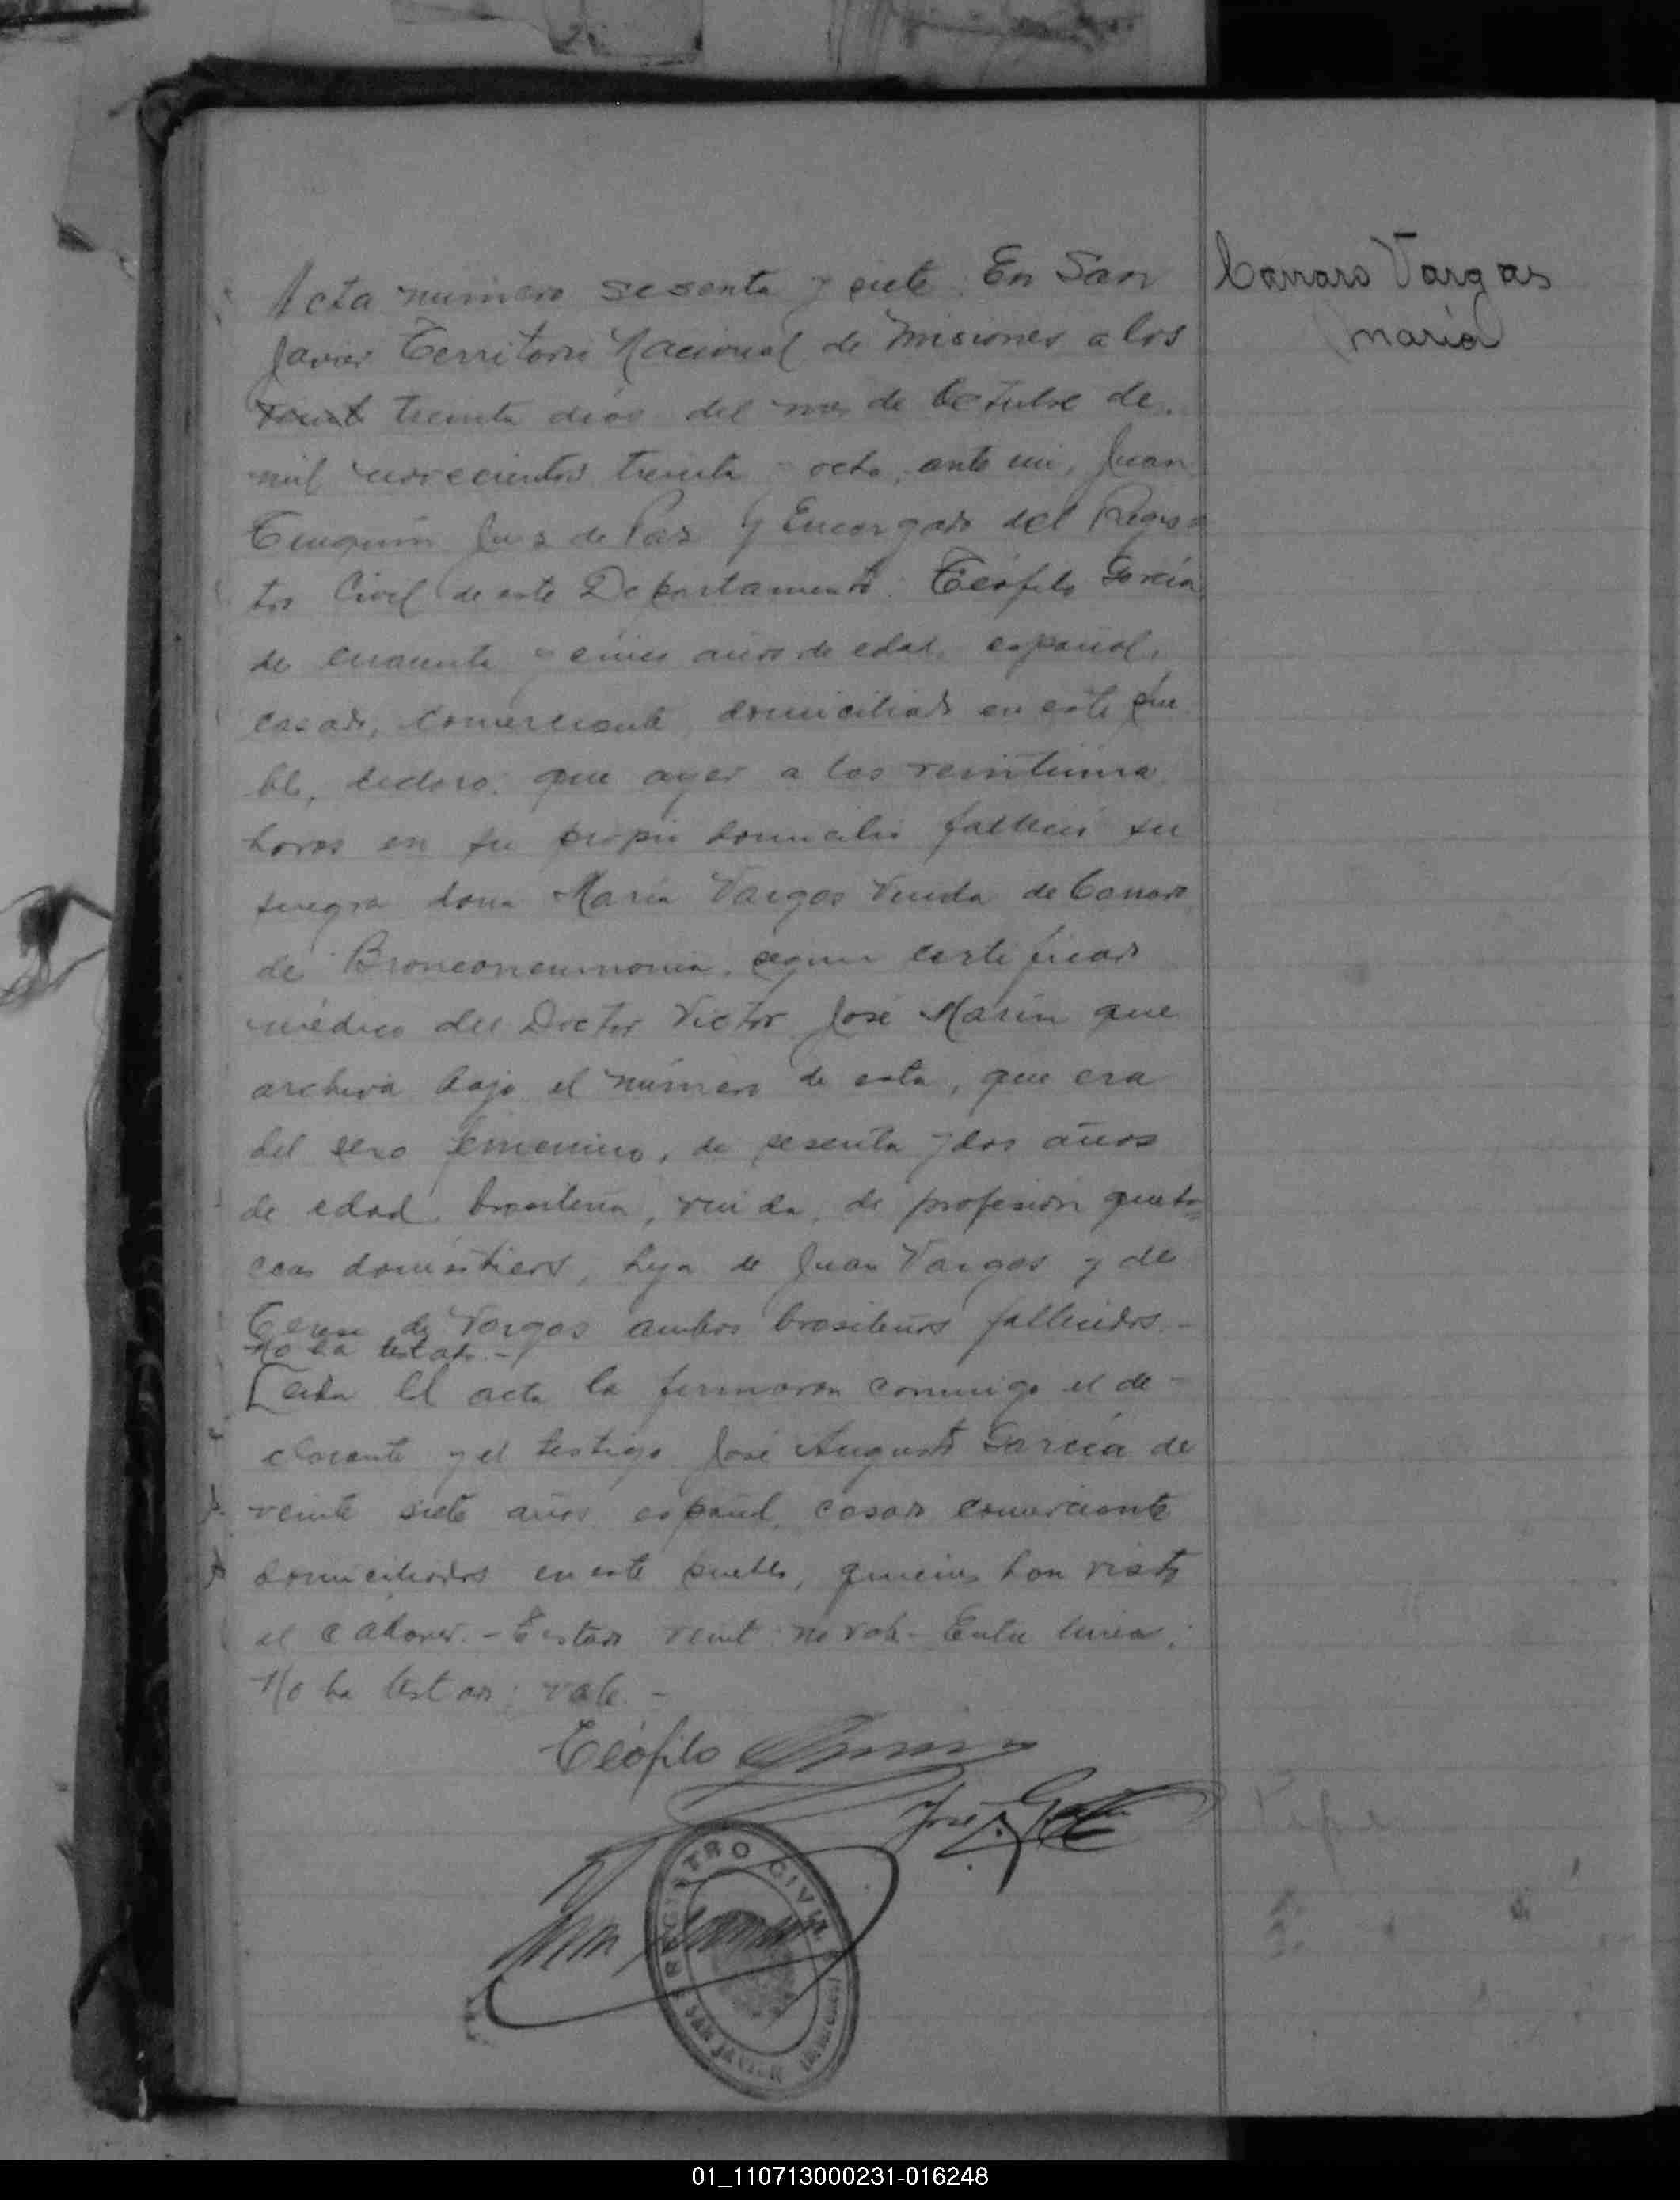 Acta número sesenta y siete. En San
Javier Territorio Nacional de Misiones a los
veint treinta dias del mes de Octubre de
mil novecientos treinta y ocho, ante mi, Juan
Juez de Paz y Encargado del Regis=
tro Civil de este Departamento: Teófilo García
de cincuenta y cinco años de edad, español,
casado, comerciante, domiciliado en este pue
blo, declaro: que ayer a las veintiuna
horas en su propio domicilio falleció su
suegra dona María Vargas Viuda de Canaro
de Bronconeumonia, segun certificado
médico del Doctor Victor José Marín que
archivo bajo el número de esta, que era
del sexo femenino, de sesenta y dos años
de edad, brasilera, viuda, de profesión queha=
ceres domésticos, hija de Juan Vargas y de
Teresa de Vargas ambos brasileños fallecidos.-
No ha testado.-
Leida el acta la firmaron conmigo el de-
clarante y el testigo José Augusto García de
veinte siete años, español, casado comerciante
domiciliados en este pueblo, quienes han visto
el cadaver.- Testado veint: no vale- Entre lineas:
No ha testado: vale.-
Canaro Vargas
María
Teófilo García
José A. García
REGISTRO CIVIL
SAN JAVIER (MISIONES)
01_110713000231-016248